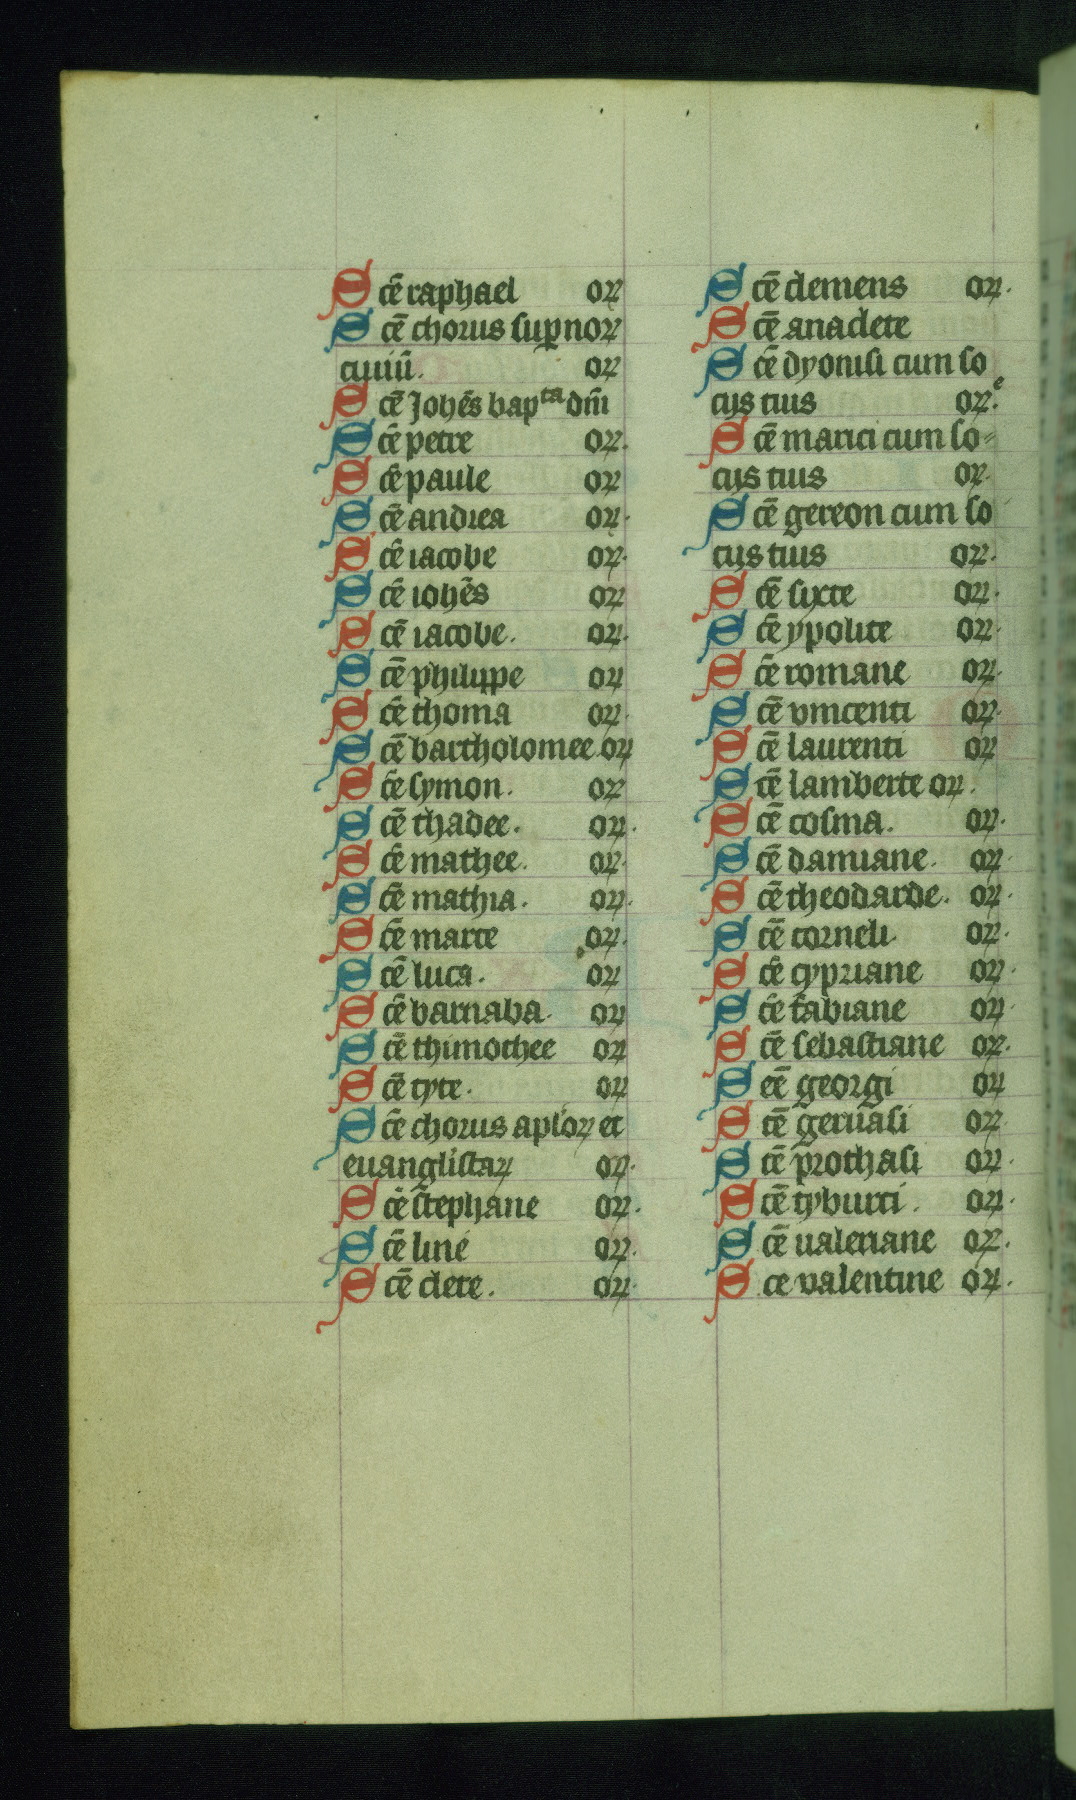 Scē raphael orꝝ
Scē chorus sup̲norꝝ
ciuiū. orꝝ
Scē Johēs bapᵗᵃ dn̄i
Scē petre orꝝ.
Scē paule orꝝ
Scē andrea orꝝ.
Scē iacobe orꝝ.
Scē iohēs orꝝ
Scē iacobe. orꝝ.
Scē philippe orꝝ
Scē thoma orꝝ.
Scē bartholomee orꝝ
Scē symon. orꝝ
Scē thadee. orꝝ.
Scē mathee. orꝝ.
Scē mathia. orꝝ.
Scē marce orꝝ.
Scē luca. orꝝ
Scē barnaba. orꝝ
Scē thimothee orꝝ
Scē tyte. orꝝ
Scē chorus apl'orꝝ et
euangl'istaꝝ orꝝ.
Scē stephane orꝝ.
Scē line orꝝ.
Scē clete. orꝝ.
Scē clemens orꝝ.
Scē anaclete
Scē dyonisi cum so
cijs tuis orꝝ.ᵉ
Scē maurici cum so⸗
cijs tuis orꝝ.
Scē gereon cum so
cijs tuis orꝝ.
Scē sixte orꝝ.
Scē ypolite orꝝ.
Scē romane orꝝ.
Scē vincenti orꝝ.
Scē laurenti orꝝ
Scē lamberte orꝝ.
Scē cosma. orꝝ.
Scē damiane. orꝝ.
Scē theodarde. orꝝ.
Scē corneli orꝝ.
Scē cypriane orꝝ.
Scē fabiane orꝝ.
Scē sebastiane orꝝ.
Scē georgi orꝝ
Scē geruasi orꝝ.
Scē prothasi orꝝ.
Scē tyburci. orꝝ.
Scē ualeriane orꝝ.
Sce valentine orꝝ.